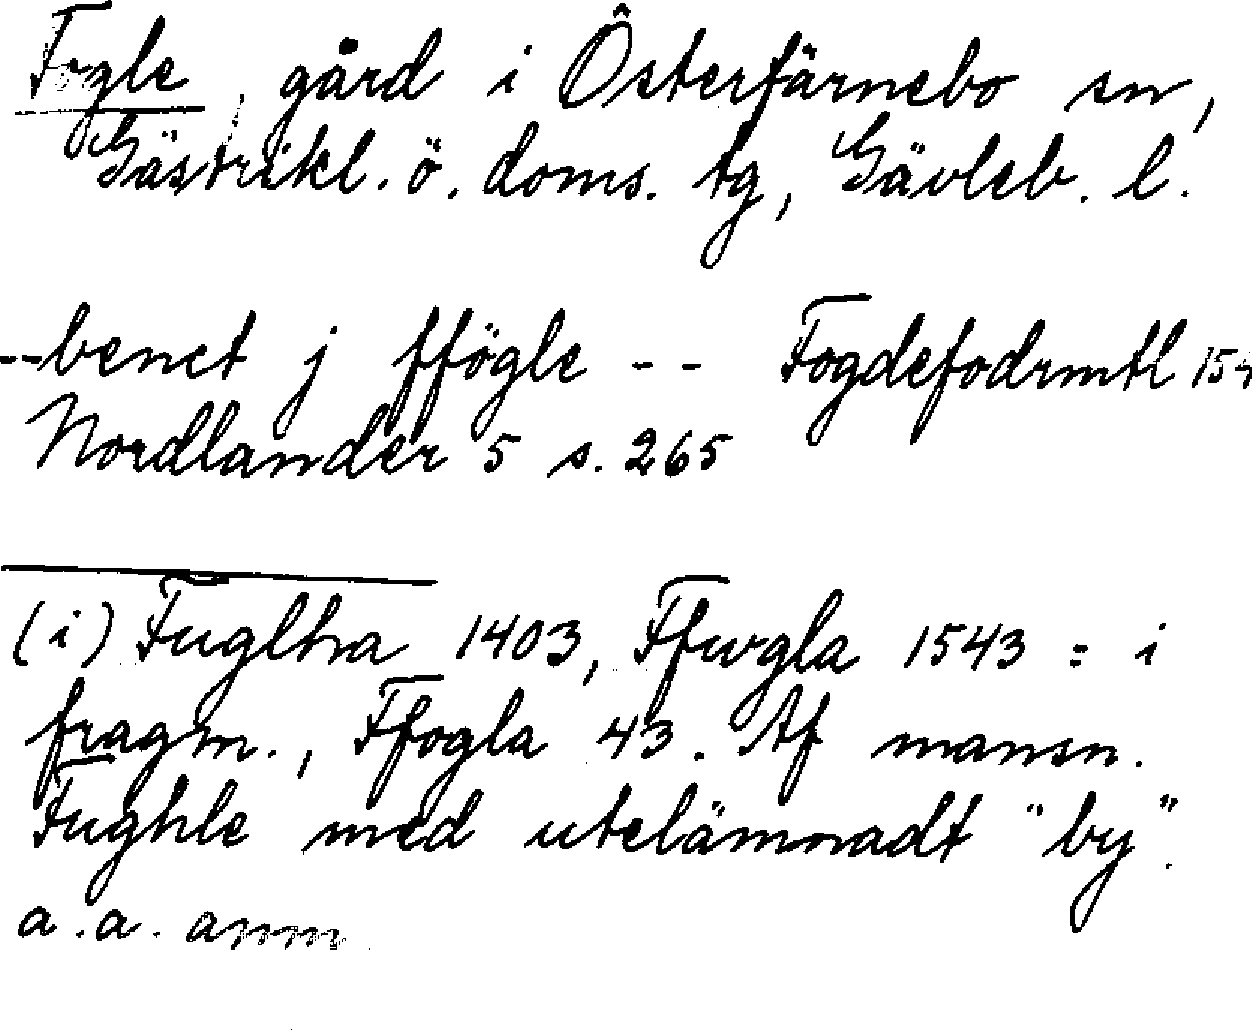 Fogle, gård i Österfärnebo sn,
Gästrikl. ö. doms. tg, Gävleb. l.
--benct j ffögle -- Fogdefodrmtl
Nordlander 5 s. 265
(i) Fuglha 1403, Ffwgla 1543 = i
fragm., Ffogla 43. Af mansn.
Fughle med utelämnadt "by".
a.a. anm